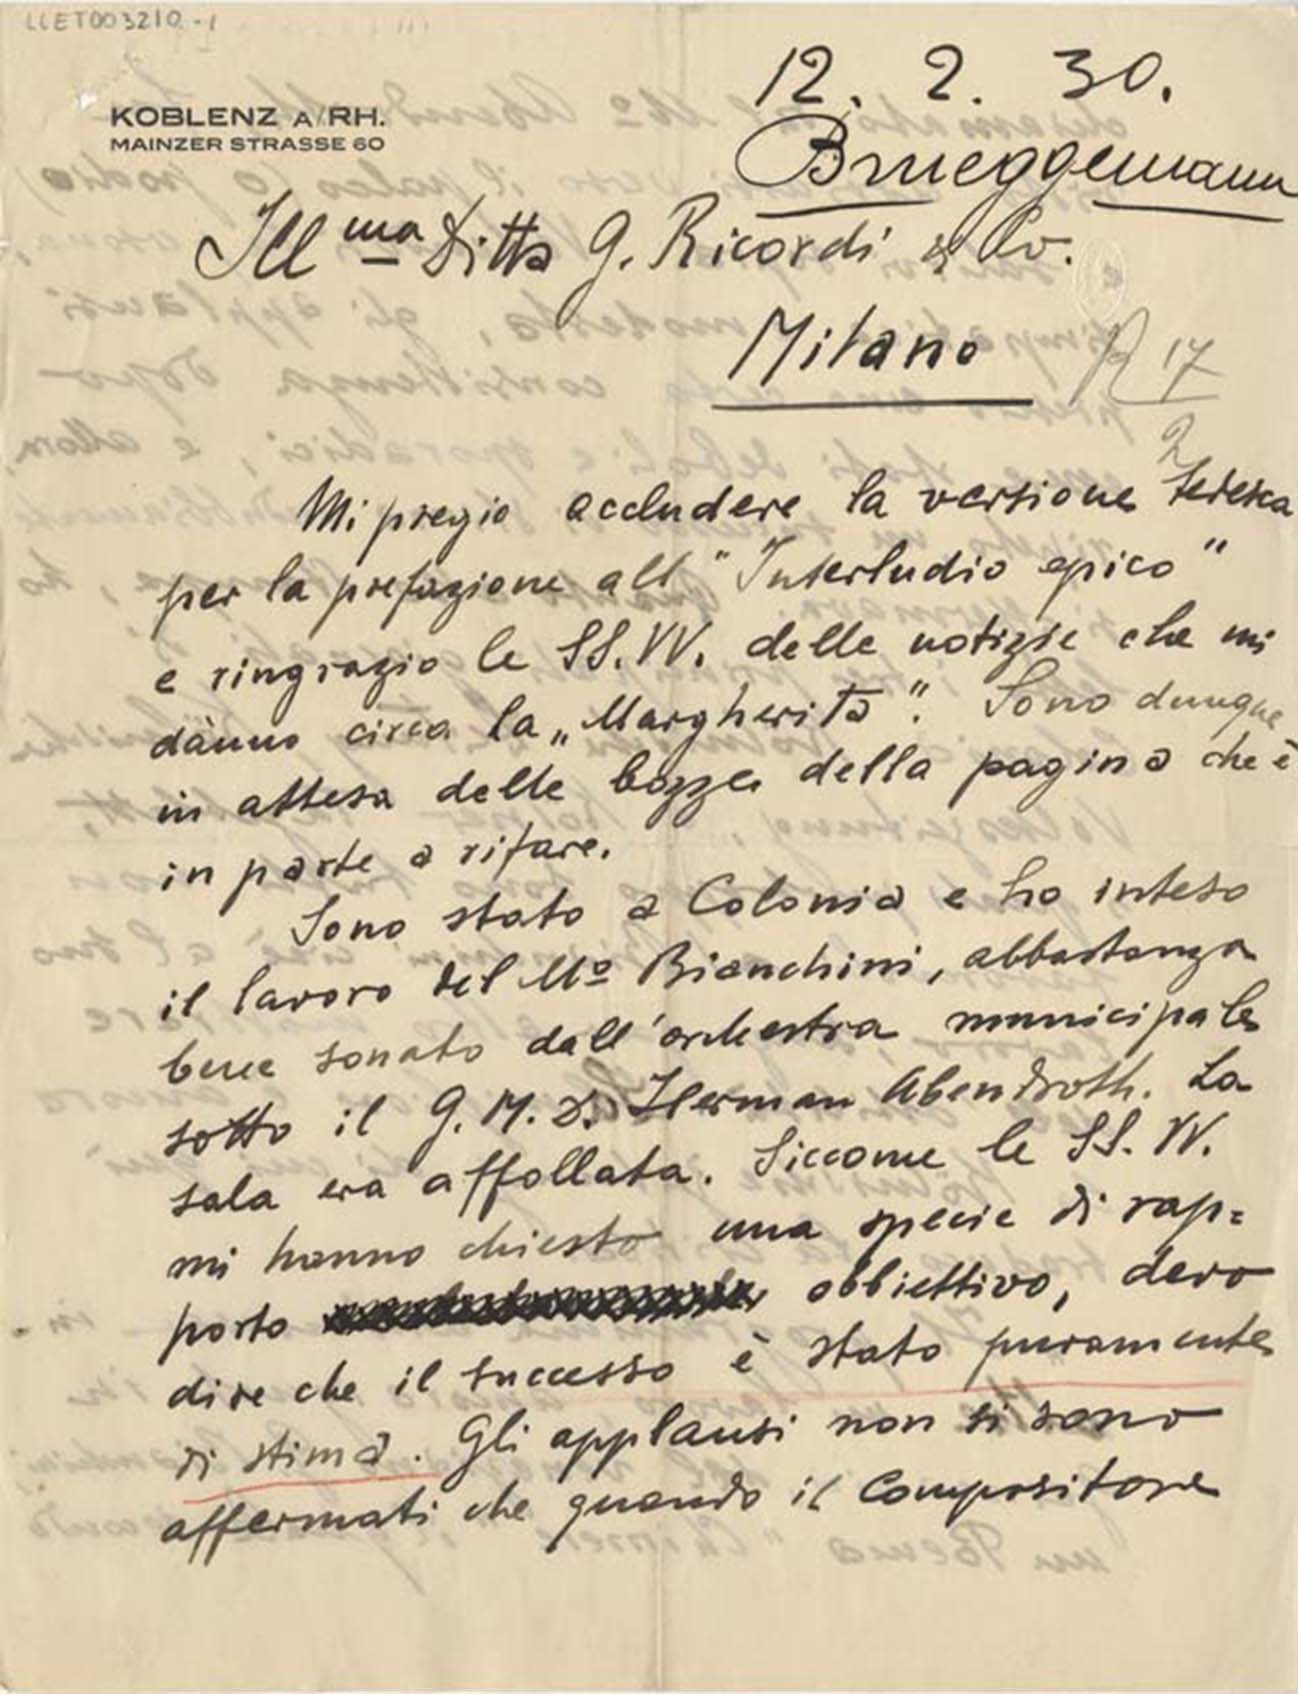 LLET003210-1
12. 2. 30.
KOBLENZ A/RH.
MAINZER STRASSE 60
Brueggemann
Ill ma Ditta G. Ricordi & Co.
Milano
R 17
2
Mi pregio accludere la versione tedesca
per la prefazione all "Interludio epico"
e ringrazio le SS.VV. delle notizie che mi
dànno circa la „Margherita". Sono dunque
in attesa delle bozze della pagina che è
in parte a rifare.
Sono stato a Colonia e ho inteso
il lavoro del Mº Bianchini, abbastanza
bene sonato dall'orchestra municipale
sotto il G. M. D. Herman Abendroth. La
sala era affollata. Siccome le SS. VV.
mi hanno chiesto una specie di rap=
porto obbiettivo, devo
dire che il successo è stato puramente
di stima. Gli applausi non si sono
affermati che quando il Compositore